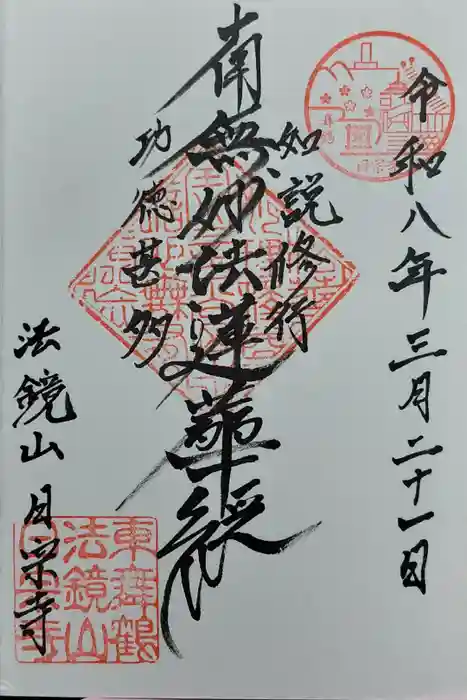 令和八年三月二十一日
如説修行
南無妙法蓮華経
功徳甚多
法鏡山 日栄寺
東舞鶴
法鏡山
日栄寺